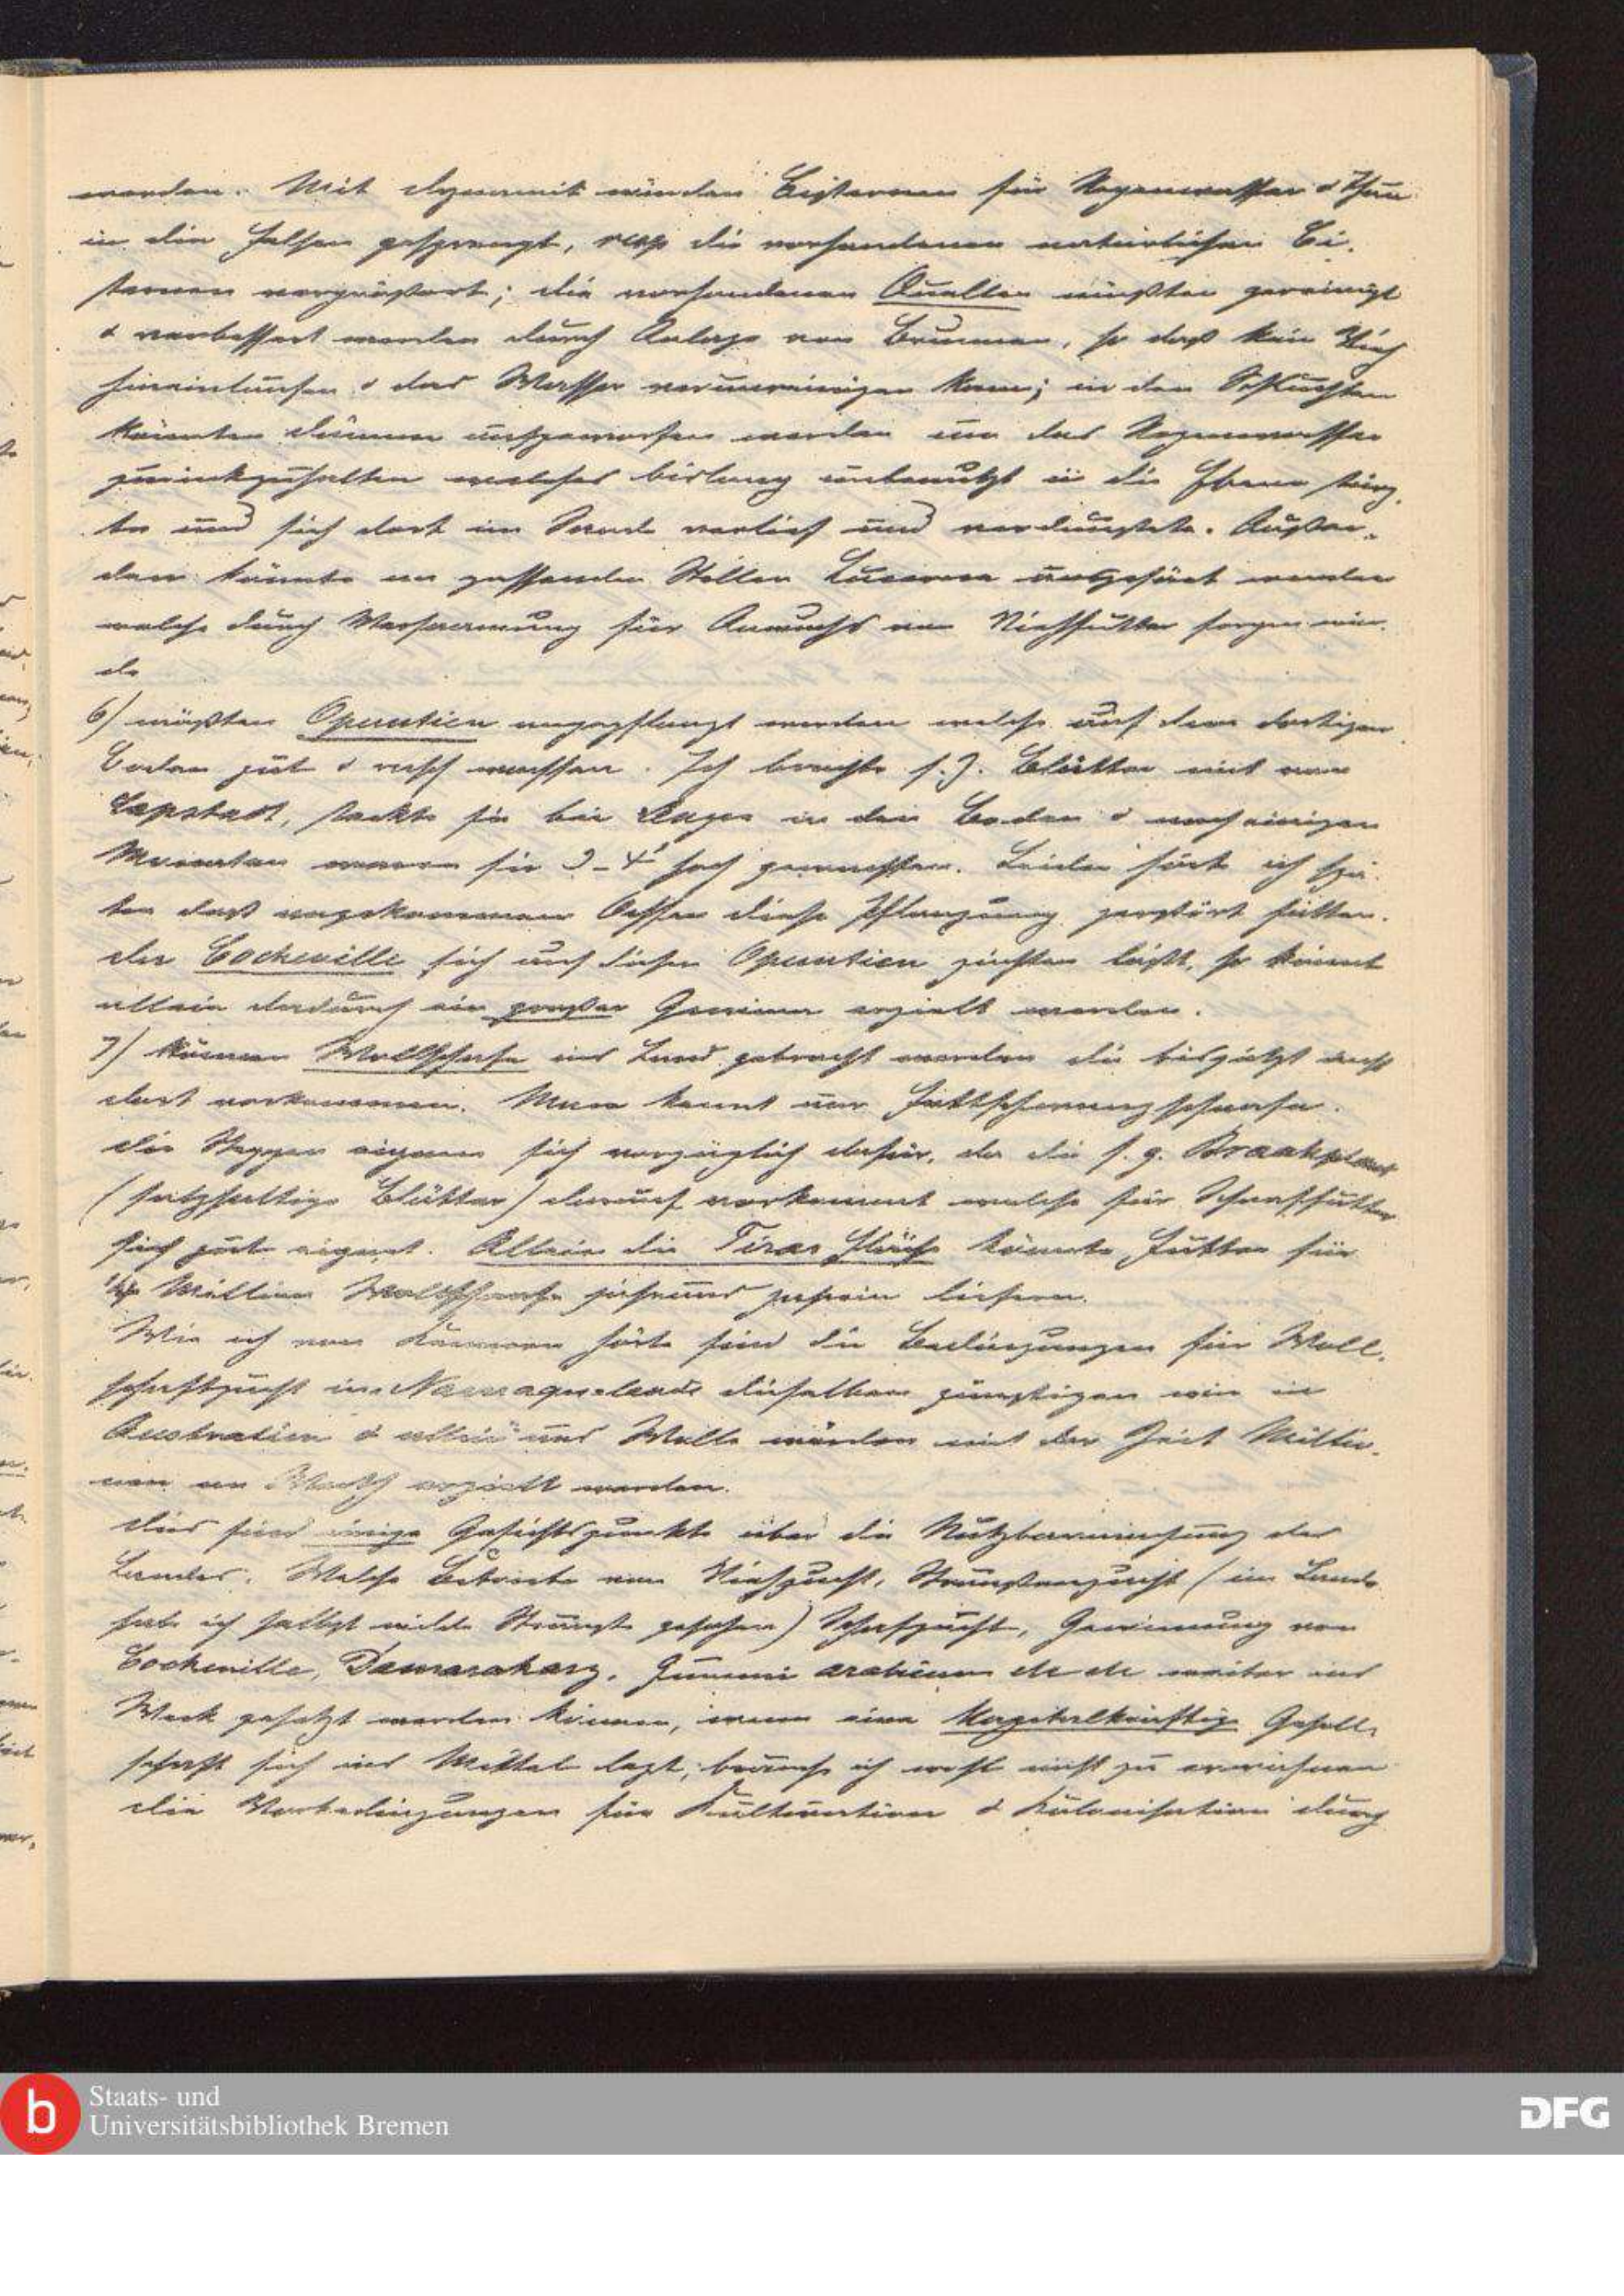 werden. Mit Dynamit würden Cisternen für Regenwasser & Thau
in die Felsen gesprengt, resp die vorhandenen natürlichen Ci-
sternen vergrößert; die vorhandenen Quellen müßten gereinigt
& verbessert werden durch Anlage von Brunnen, so daß kein Vieh
hineinlaufen & das Wasser verunreinigen kann; in den Schluchten
könnten Dämme aufgeworfen werden um das Regenwasser
zurückzuhalten welches bislang unbenutzt in die Ebene stürz-
te und sich dort im Sande verlief und verdunstete. Außer-
dem könnte an passenden Stellen Lucerne ausgesäet werden
welche durch Versaamung für Anwuchs von Viehfutter sorgen wür-
de
6) müßten Opuntien angepflanzt werden welche auf dem dortigen
Boden gut & rasch wachsen. Ich brachte s. Z. Blätter mit von
Capstadt, steckte sie bei in den Boden & nach einigen
Monaten waren sie 3-4' hoch gewachsen. Leider hört ich spä-
ter daß angekommene Ochsen diese Pflanzung zerstört hätten.
da Cochenille sich auf diesen Opuntien züchten läßt, so könnt
allein dadurch ein großer Gewinn erzielt werden.
7) können Wollschafe ins Land gebracht werden die bis jetzt nicht
dort vorkommen. Man kennt nur Fettschwanzschaafe.
die Steppen eignen sich vorzüglich dafür, da die s. g. Braakplant
(salzhaltige Blätter) darauf vorkommt welche für Schaaffutter
sich gut eignet. Allein die Tiras Fläche könnte Futter für
Million Wollschaafe jahraus jahrein liefern.
Wie ich von Kennern hörte sind die Bedingungen für Woll-
schafzucht in Namaqualand dieselben günstigen wie in
Australien & allein aus Wolle würden mit der Zeit Millio-
nen an Mark erzielt werden.
dies sind einige Gesichtspunkte über die Nutzbarmachung des
Landes. Welche Betriebe von Viehzucht, Straußenzucht (im Lande
habe ich selbst wilde Strauße gesehen) Schafzucht, Gewinnung von
Cochenille, Damaraharz, Gummi arabicum etc etc weiter ins
Werk gesetzt werden können, wenn eine Kapitalkräftige Gesell-
schaft sich ins Mittel legt, brauche ich wohl nicht zu erwähnen
die Vorbedingungen für Kultivation & Kolonisation durch
Staats- und
Universitätsbibliothek Bremen
DFG